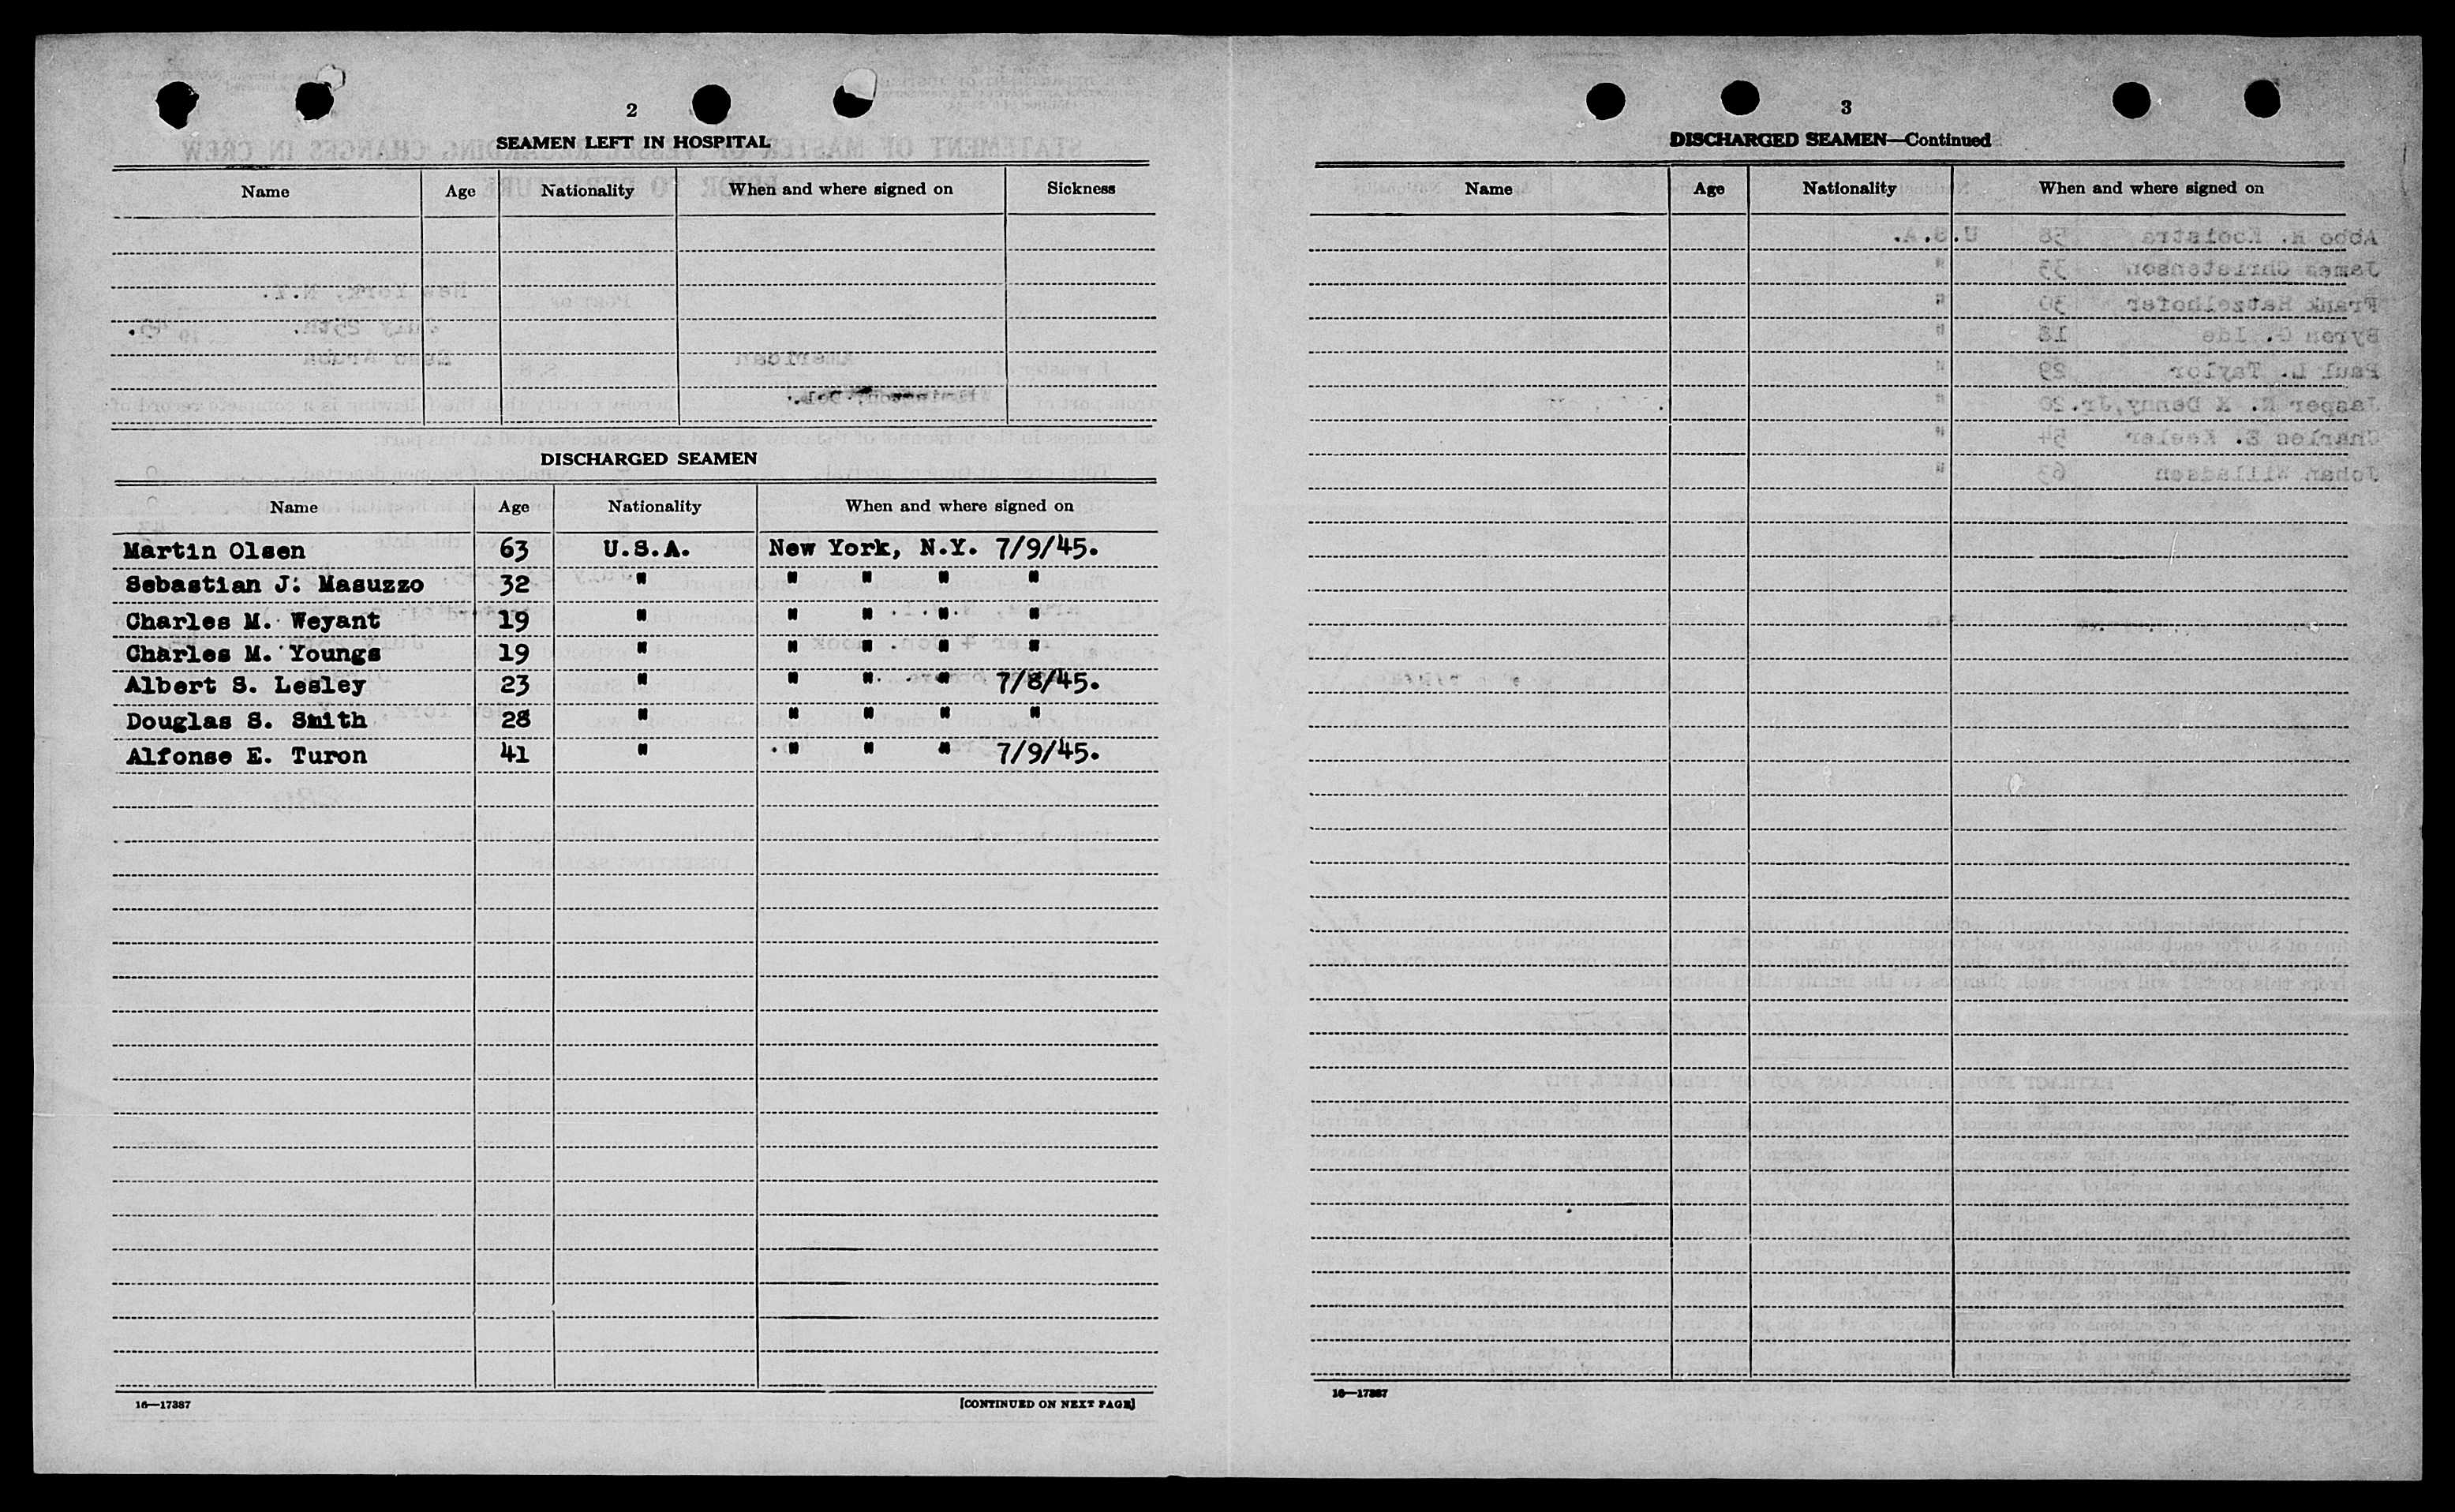 2
SEAMEN LEFT IN HOSPITAL
Name Age Nationality When and where signed on Sickness
DISCHARGED SEAMEN
Name Age Nationality When and where signed on
Martin Olsen 63 U.S.A. New York, N.Y. 7/9/45.
Sebastian J. Masuzzo 32 " " " " "
Charles M. Weyant 19 " " " " "
Charles M. Youngs 19 " " " " "
Albert S. Lesley 23 " " " " 7/8/45.
Douglas S. Smith 28 " " " " "
Alfonse E. Turon 41 " " " " 7/9/45.
16—17387 [CONTINUED ON NEXT PAGE]
3
DISCHARGED SEAMEN—Continued
Name Age Nationality When and where signed on
16—17387